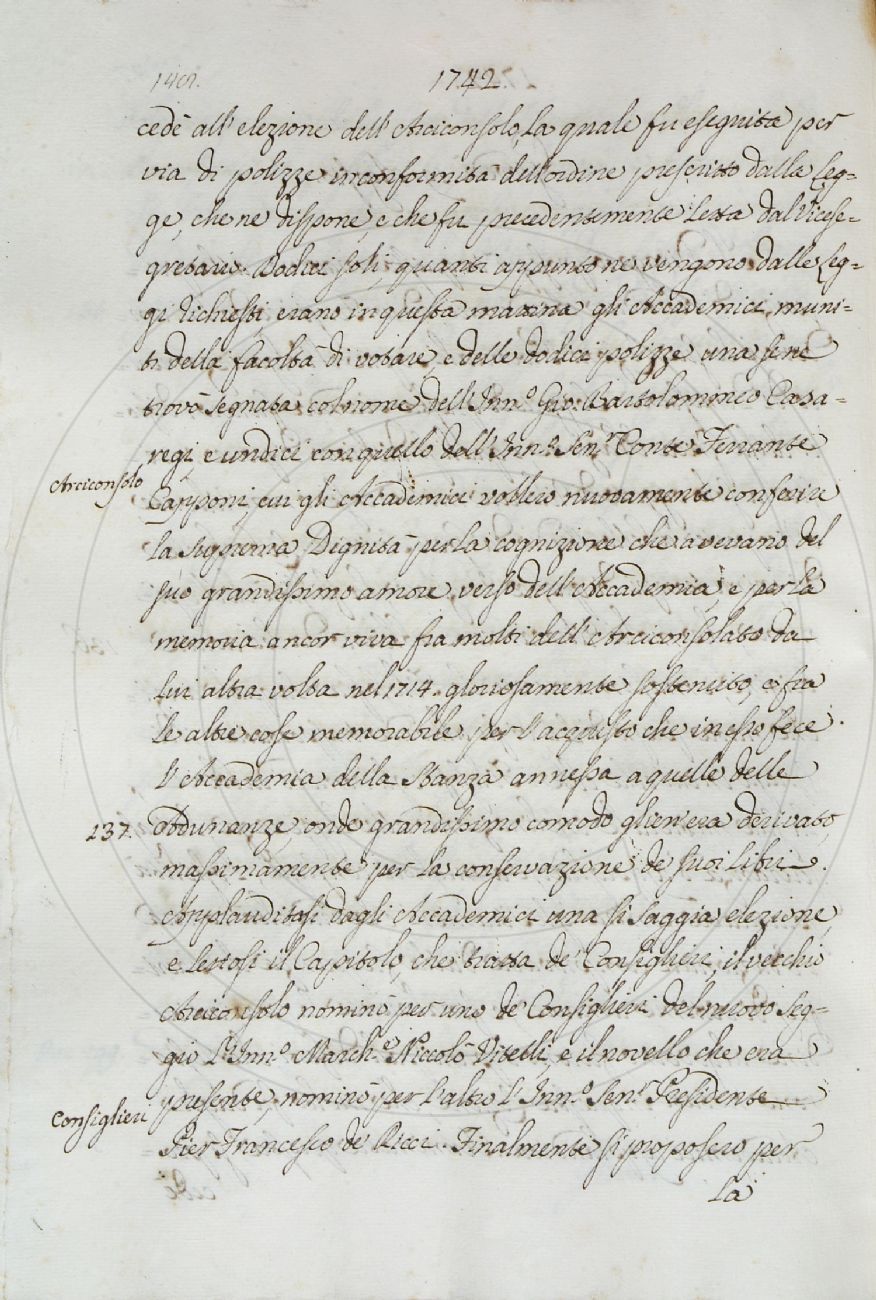 1742.
cedè all'elezione dell'Arciconsolo, la quale fu eseguita per
via di polizze inconformità dell'ordine prescritto dalla Leg=
ge, che ne dispone, e che fu precedentemente letta dal Vicese=
gretario. Dodici soli, quanti appunto ne vengono dalle Leg=
gi richiesti, erano in questa mattina gli Accademici muni=
ti della facoltà di votare, e delle dodici polizze una se ne
trovò segnata col nome dell'Inn.º Gio: Bartolommeo Casa=
regi, e undici con quello dell'Inn.º Sen.r Conte Ferrante
Arciconsolo
Capponi, cui gli Accademici vollero nuovamente conferire
la suprema Dignità per la cognizione che avevano del
suo grandissimo amore verso dell'Accademia, e per la
memoria ancor viva fra molti dell'Arciconsolato da
lui altra volta nel 1714. gloriosamente sostenuto, e fra
le altre cose memorabile per l'acquisto che in esso fece
l'Accademia della Stanza annessa a quelle delle
237.
Adunanze, onde grandissimo comodo glien'era derivato,
massimamente per la conservazione de' suoi Libri.
Applauditasi dagli Accademici una sì saggia elezione,
e lettosi il Capitolo, che tratta de' Consiglieri, il vecchio
Arciconsolo nominò per uno de' Consiglieri del nuovo Seg=
gio l'Inn.º March.e Niccolò Vitelli, e il novello che era
presente, nominò per l'altro l'Inn.º Sen.r Presidente
Consiglieri
Pier Francesco de' Ricci. Finalmente si proposero per
la